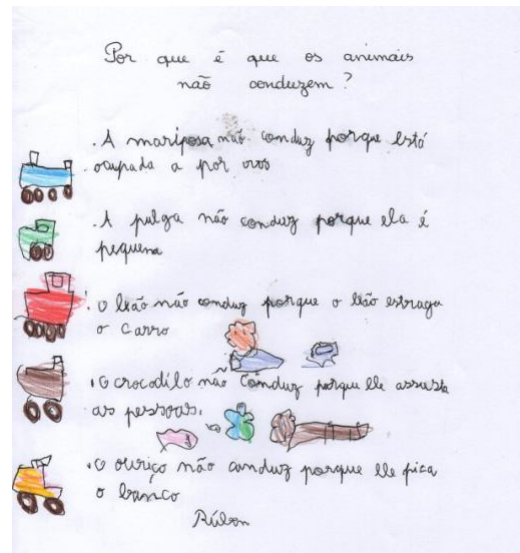 Por que é que os animais
não conduzem?
. A mariposa não conduz porque está
ocupada a por ovos
. A pulga não conduz porque ela é
pequena
. O leão não conduz porque o leão estraga
o carro
. O crocodilo não conduz porque ele assusta
as pessoas.
. O ouriço não conduz porque ele pica
o banco
Rúben